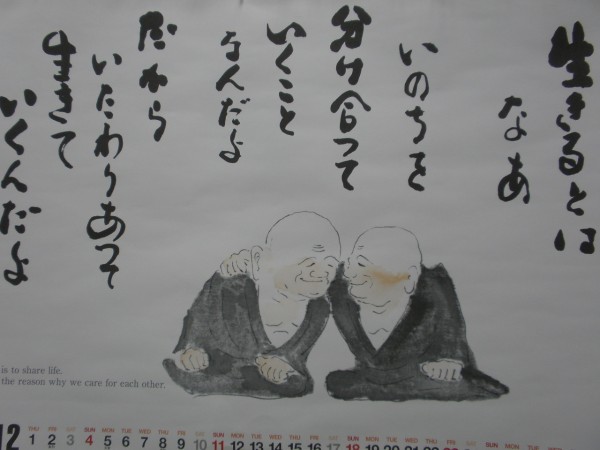 生きるとは
なあ
いのちを
分け合って
いくこと
なんだよ
だから
いたわりあって
生きて
いくんだよ
is to share life.
the reason why we care for each other.
12
THU FRI SAT SUN MON TUE WED THU FRI SAT SUN MON TUE WED THU FRI SAT SUN MON TUE WED THU
1 2 3 4 5 6 7 8 9 10 11 12 13 14 15 16 17 18 19 20 21 22